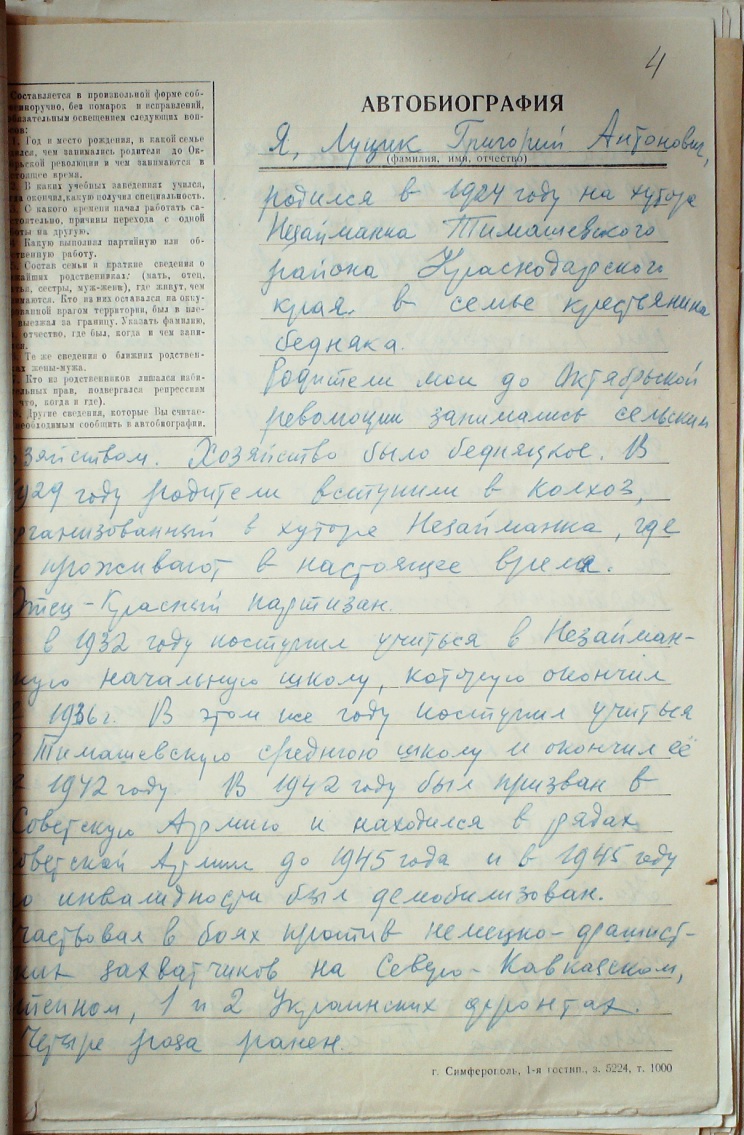 4
Составляется в произвольной форме соб-
венноручно, без помарок и исправлений,
бязательным освещением следующих воп-
сов:
1. Год и место рождения, в какой семье
ился, чем занимались родители до Ок-
рьской революции и чем занимаются в
тоящее время.
2. В каких учебных заведениях учился,
да окончил, какую получил специальность.
3. С какого времени начал работать са-
тоятельно, причины перехода с одной
оты на другую.
4. Какую выполнял партийную или об-
твенную работу.
5. Состав семьи и краткие сведения о
жайших родственниках: (мать, отец,
тья, сестры, муж-жена), где живут, чем
имаются. Кто из них оставался на окку-
ованной врагом территории, был в пле-
выезжал за границу. Указать фамилию,
отчество, где был, когда и чем зани-
ся.
6. Те же сведения о ближних родствен-
ах жены-мужа.
7. Кто из родственников лишался изби-
льных прав, подвергался репрессиям
что, когда и где).
8. Другие сведения, которые Вы считае-
необходимым сообщить в автобиографии.
АВТОБИОГРАФИЯ
Я, Луцик Григорий Антонович,
(фамилия, имя, отчество)
родился в 1924 году на хуторе
Незайманка Тимашевского
района Краснодарского
края в семье крестянина
бедняка.
Родители мои до Октябрьской
революции занимались сельским
озяйством. Хозяйство было бедняцкое. В
1929 году родители вступили в колхоз,
рганизованный в хуторе Незайманка, где
и проживают в настоящее время.
Отец - Красный партизан.
в 1932 году поступил учиться в Незайман-
кую начальную школу, которую окончил
в 1936 г. В этом же году поступил учиться
в Тимашевскую среднюю школу и окончил её
в 1942 году В 1942 году был призван в
Советскую Армию и находился в рядах
Советской Армии до 1945 года и в 1945 году
по инвалидности был демобилизован.
Участвовал в боях против немецко-фашист-
ких захватчиков на Северо-Кавказском,
тепном, 1 и 2 Украинских фронтах.
Четыре раза ранен.
г. Симферополь, 1-я гостип., з. 5224, т. 1000